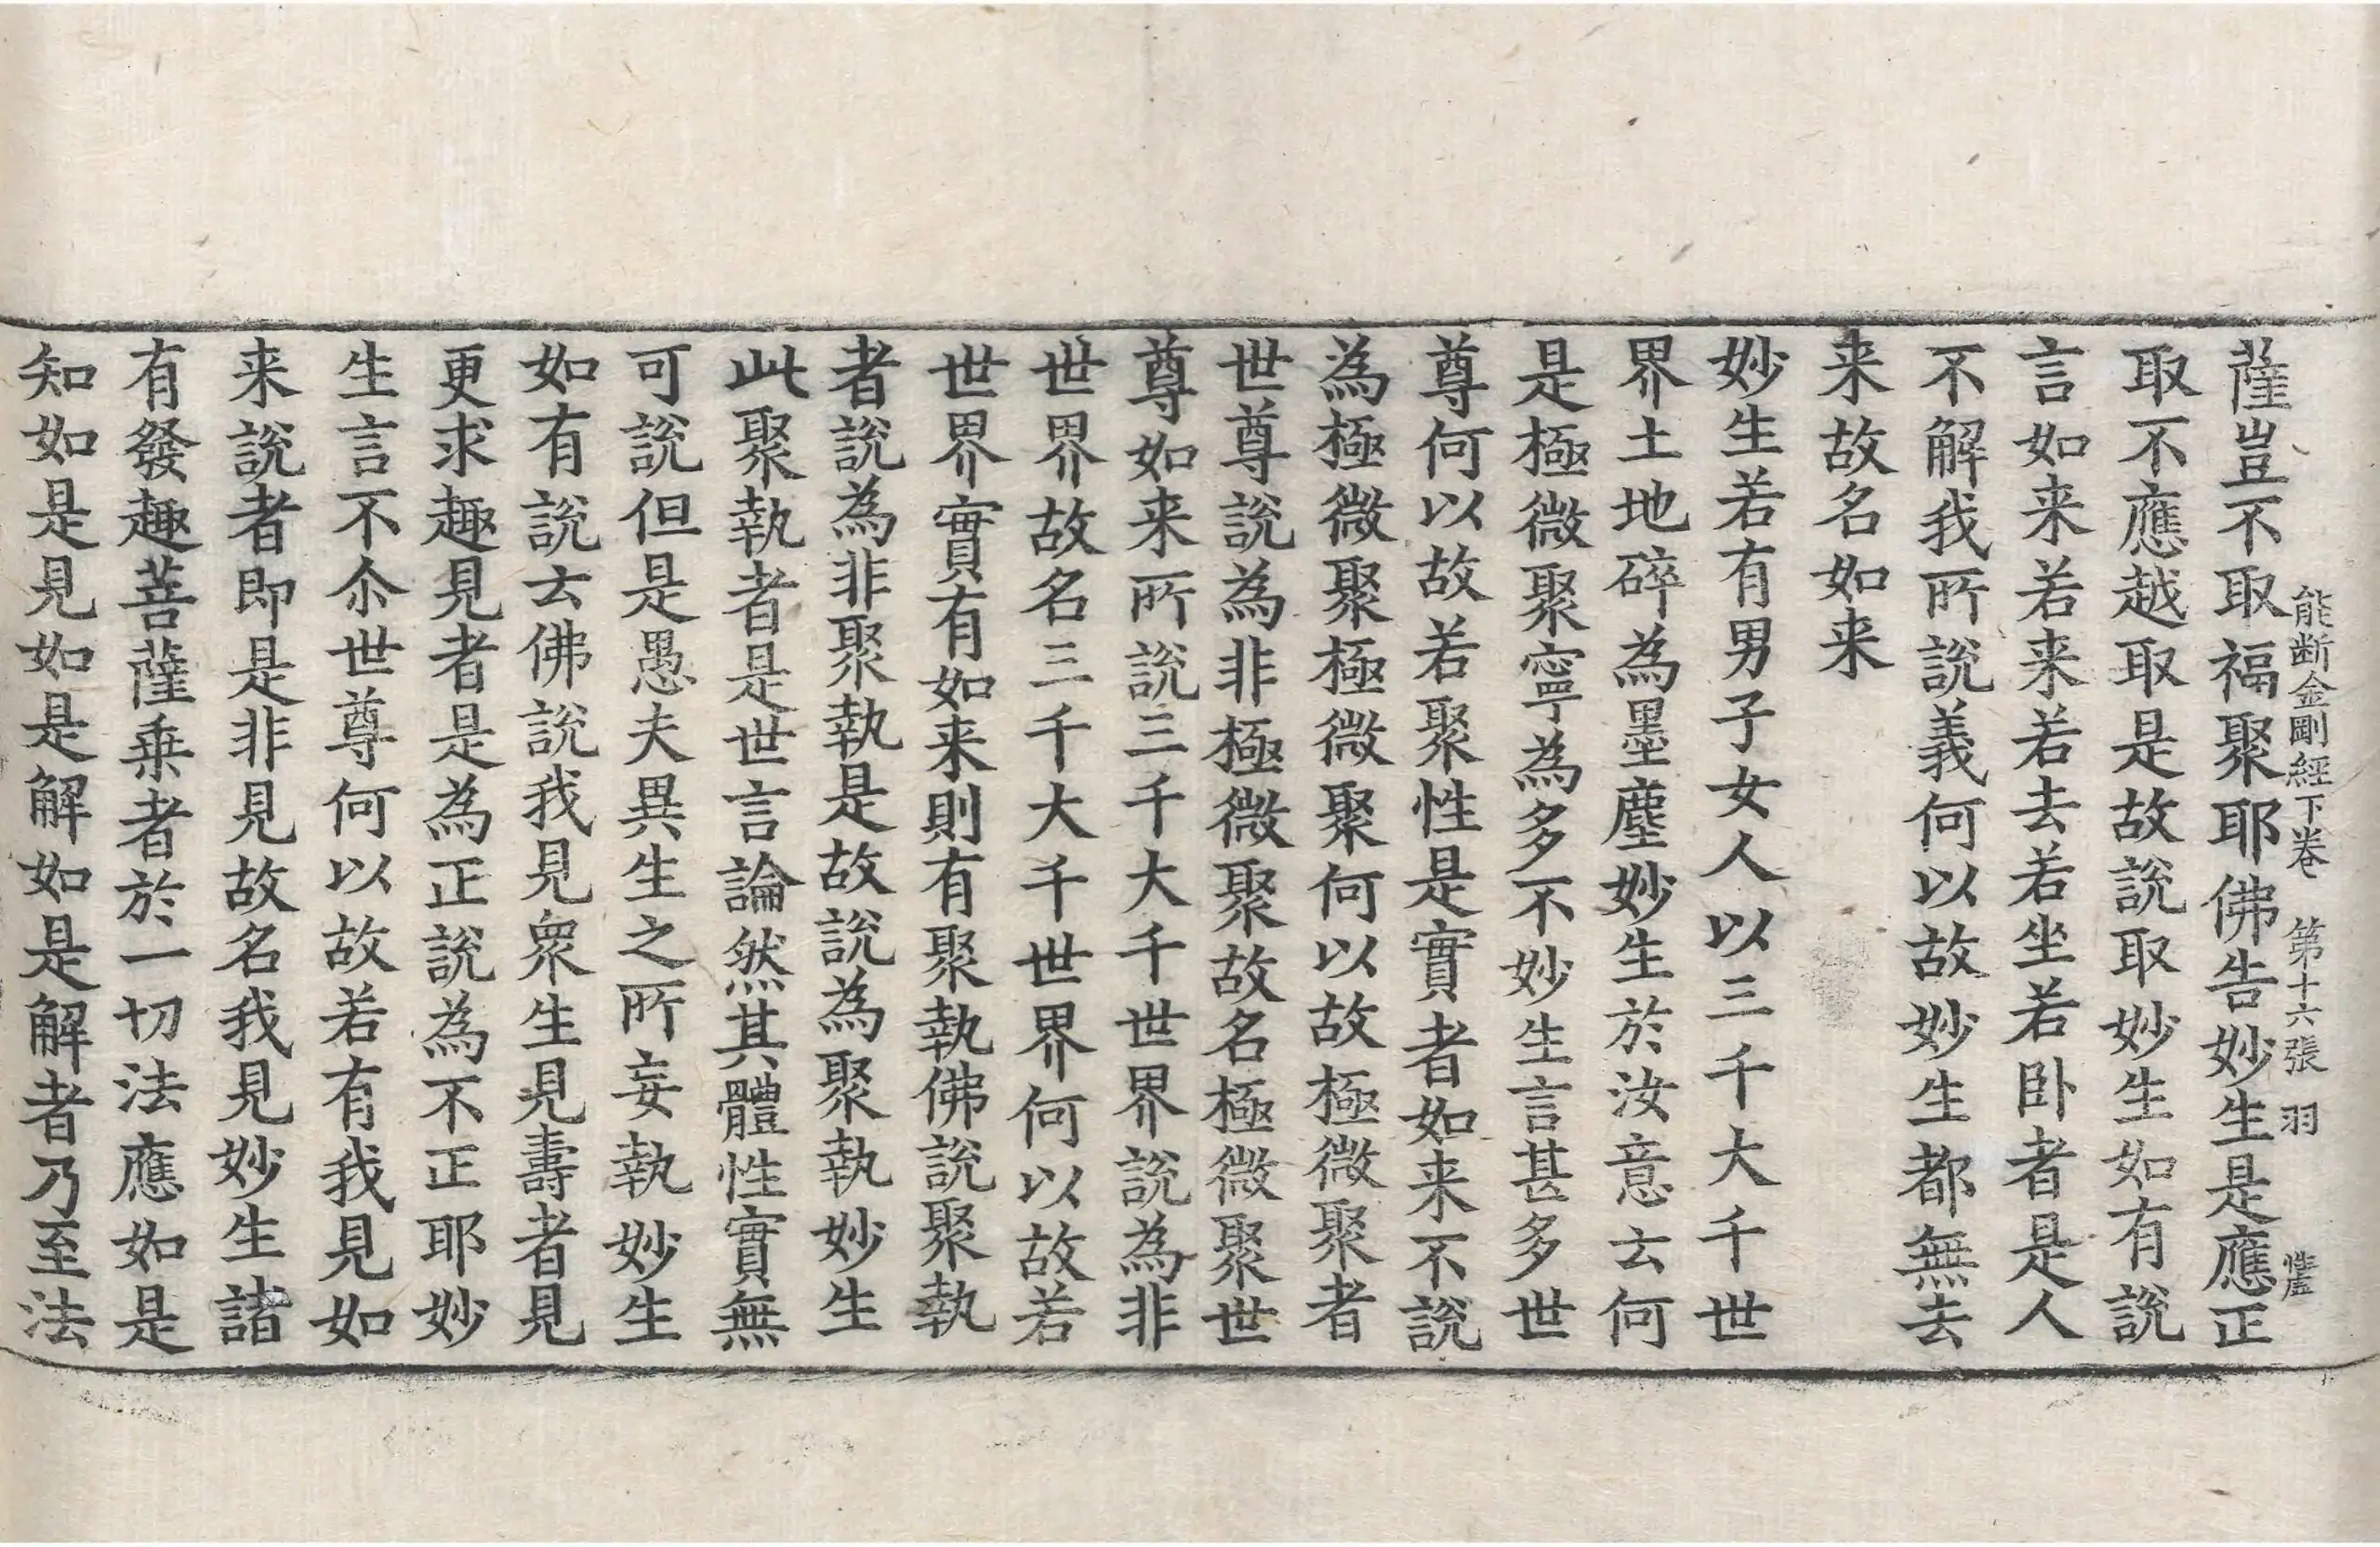 能断金剛經下卷　第十六張　羽
薩豈不取福聚耶佛告妙生是應正
取不應越取是故說取妙生如有說
言如来若来若去若坐若卧者是人
不解我所說義何以故妙生都無去
来故名如来
妙生若有男子女人以三千大千世
界土地碎為墨塵妙生於汝意云何
是極微聚寧為多不妙生言甚多世
尊何以故若聚性是實者如来不說
為極微聚極微聚何以故極微聚者
世尊說為非極微聚故名極微聚世
尊如来所說三千大千世界說為非
世界故名三千大千世界何以故若
世界實有如来則有聚執佛說聚執
者說為非聚執是故說為聚執妙生
此聚執者是世言論然其體性實無
可說但是愚夫異生之所妄執妙生
如有說云佛說我見衆生見壽者見
更求趣見者是為正說為不正耶妙
生言不尒世尊何以故若有我見如
来說者即是非見故名我見妙生諸
有發趣菩薩乗者於一切法應如是
知如是見如是解如是解者乃至法